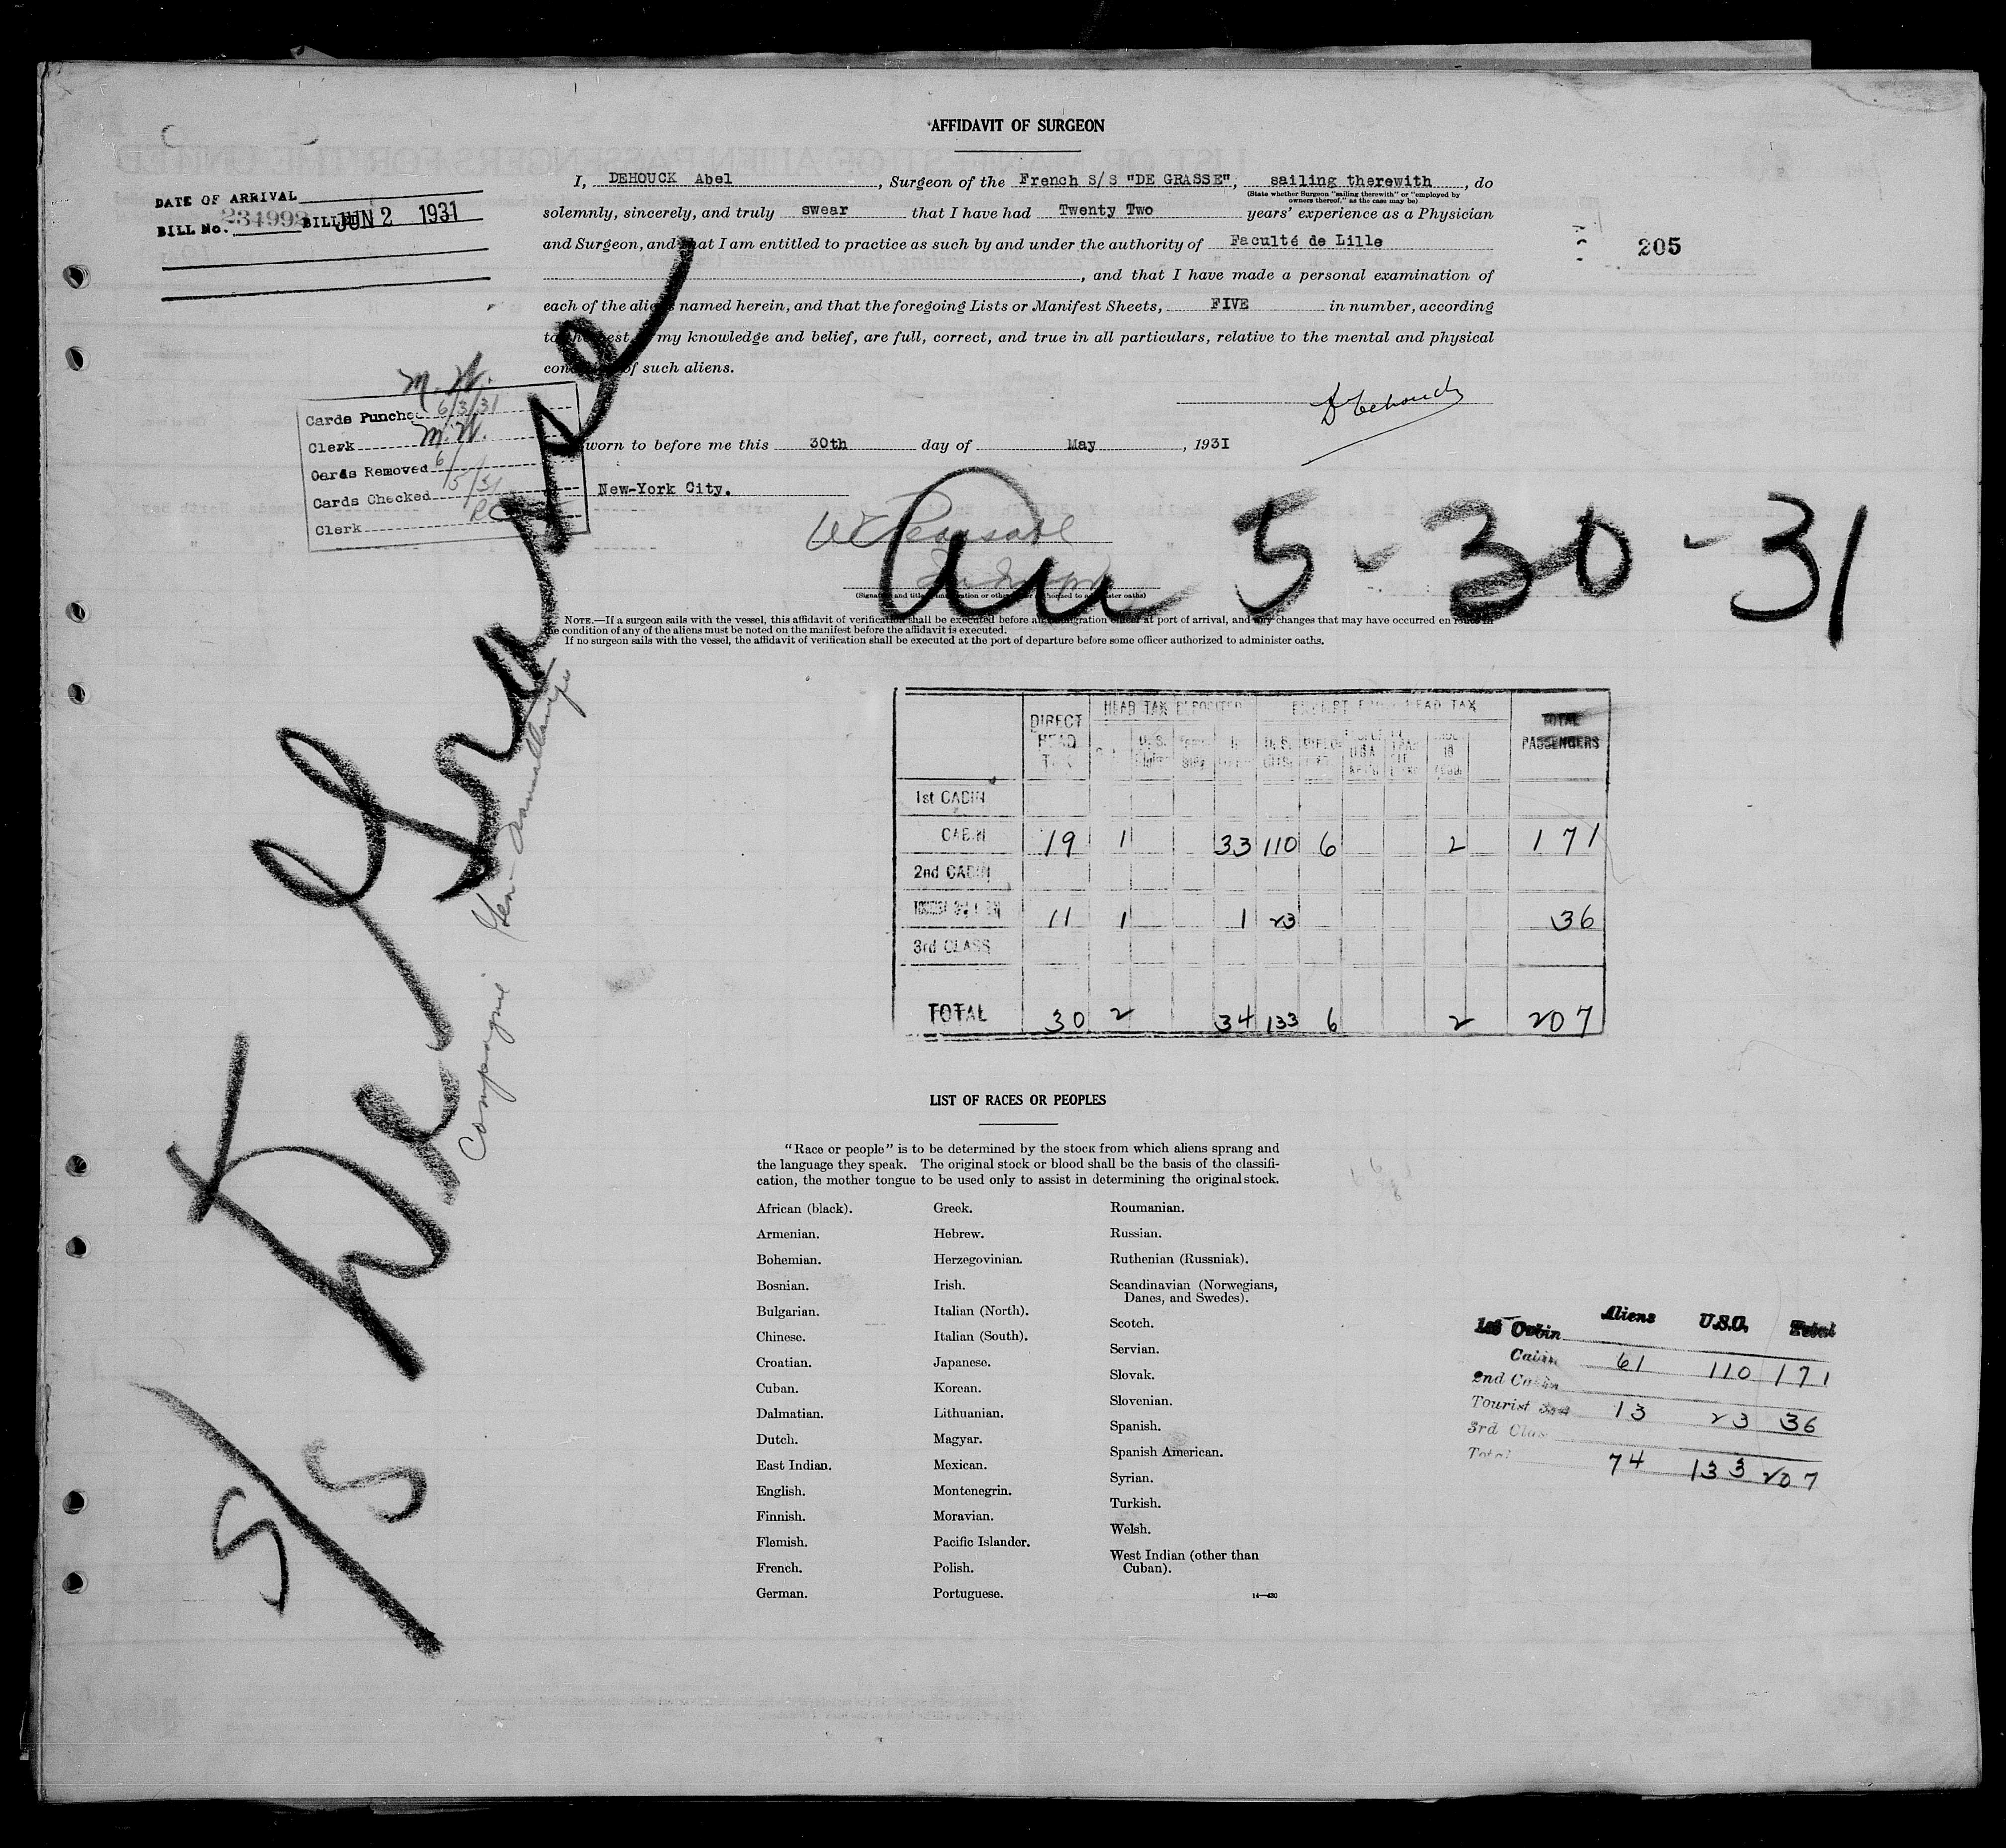 AFFIDAVIT OF SURGEON
I, DEHOUCK Abel, Surgeon of the French S/S "DE GRASSE", sailing therewith, do
(State whether Surgeon "sailing therewith" or "employed by owners thereof," as the case may be)
solemnly, sincerely, and truly swear that I have had Twenty Two years' experience as a Physician
and Surgeon, and that I am entitled to practice as such by and under the authority of Faculté de Lille
, and that I have made a personal examination of
each of the aliens named herein, and that the foregoing Lists or Manifest Sheets, FIVE in number, according
to the best of my knowledge and belief, are full, correct, and true in all particulars, relative to the mental and physical
condition of such aliens.
DATE OF ARRIVAL
BILL No. 234998 BILL JUN 2 1931
205
M.W.
Cards Punched 6/3/31
Clerk M.W.
Cards Removed 6/5/31
Cards Checked
Clerk
Dehouck
Sworn to before me this 30th day of May, 1931
New-York City.
5-30-31
NOTE.—If a surgeon sails with the vessel, this affidavit of verification shall be executed before an immigration officer at port of arrival, and any changes that may have occurred en route in
the condition of any of the aliens must be noted on the manifest before the affidavit is executed.
If no surgeon sails with the vessel, the affidavit of verification shall be executed at the port of departure before some officer authorized to administer oaths.
S/S De Grasse
Compagnie Gen
DIRECT HEAD TAX HEAD TAX DEPOSITED EXEMPT FROM HEAD TAX TOTAL PASSENGERS
1st CABIN
CABIN 19 1 33 110 6 2 171
2nd CABIN
11 1 1 23 36
3rd CLASS
TOTAL 30 2 34 133 6 2 207
LIST OF RACES OR PEOPLES
"Race or people" is to be determined by the stock from which aliens sprang and
the language they speak. The original stock or blood shall be the basis of the classifi-
cation, the mother tongue to be used only to assist in determining the original stock.
African (black).
Armenian.
Bohemian.
Bosnian.
Bulgarian.
Chinese.
Croatian.
Cuban.
Dalmatian.
Dutch.
East Indian.
English.
Finnish.
Flemish.
French.
German.
Greek.
Hebrew.
Herzegovinian.
Irish.
Italian (North).
Italian (South).
Japanese.
Korean.
Lithuanian.
Magyar.
Mexican.
Montenegrin.
Moravian.
Pacific Islander.
Polish.
Portuguese.
Roumanian.
Russian.
Ruthenian (Russniak).
Scandinavian (Norwegians,
Danes, and Swedes).
Scotch.
Servian.
Slovak.
Slovenian.
Spanish.
Spanish American.
Syrian.
Turkish.
Welsh.
West Indian (other than
Cuban).
Aliens U.S.C. Total
1st Cabin
Cabin 61 110 171
2nd Cabin
Tourist 3rd 13 23 36
3rd Class
Total 74 133 207